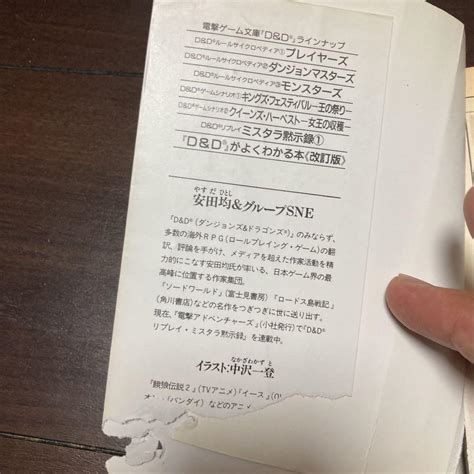 電撃ゲーム文庫『D&D®』ラインナップ
D&D®ルールサイクロペディア①プレイヤーズ
D&D®ルールサイクロペディア②ダンジョンマスターズ
D&D®ルールサイクロペディア③モンスターズ
D&D®ゲームシナリオ①キングズ・フェスティバル―王の祭り―
D&D®ゲームシナリオ②クイーンズ・ハーベスト―女王の収穫―
D&D®リプレイ ミスタラ黙示録①
『D&D®』がよくわかる本《改訂版》
やすだひとし
安田均&グループSNE
『D&D®(ダンジョンズ&ドラゴンズ®)』のみならず、
多数の海外RPG(ロールプレイング・ゲーム)の翻
訳、評論を手がけ、メディアを超えた作家活動を精
力的にこなす安田均氏が率いる、日本ゲーム界の最
高峰に位置する作家集団。
『ソードワールド』(富士見書房)『ロードス島戦記』
(角川書店)などの名作をつぎつぎに世に送り出す。
現在、『電撃アドベンチャーズ』(小社発行)で『D&D®
リプレイ・ミスタラ黙示録』を連載中。
なかざわかずと
イラスト:中沢一登
『餓狼伝説2』(TVアニメ)『イース』(O
(バンダイ)などのアニメ